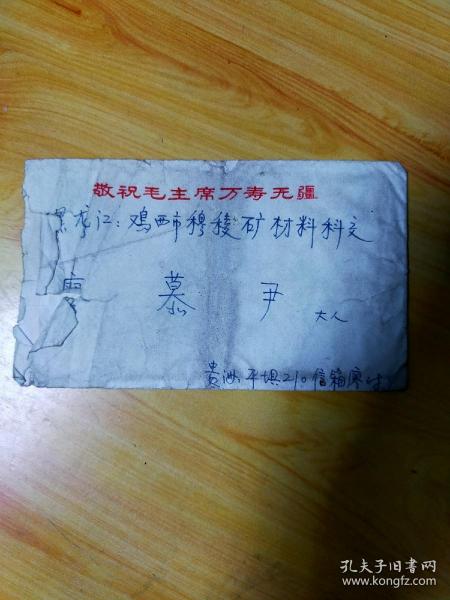 敬祝毛主席万寿无疆
黑龙江：鸡西市穆稜矿材料科交
慕 尹 大人
贵州平坝210信箱廖
孔夫子旧书网
www.kongfz.com